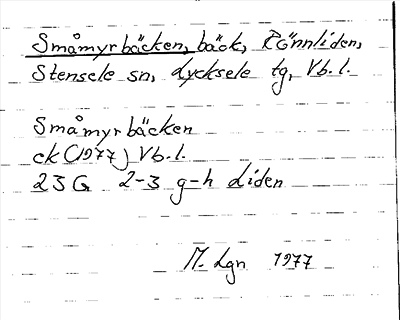 Småmyrbäcken, bäck, Rönnliden,
Stensele sn, Lycksele tg, Vb.l.
Småmyrbäcken
ek (1977) Vb.l.
23G 2-3 g-h Liden
M. Lgn 1977